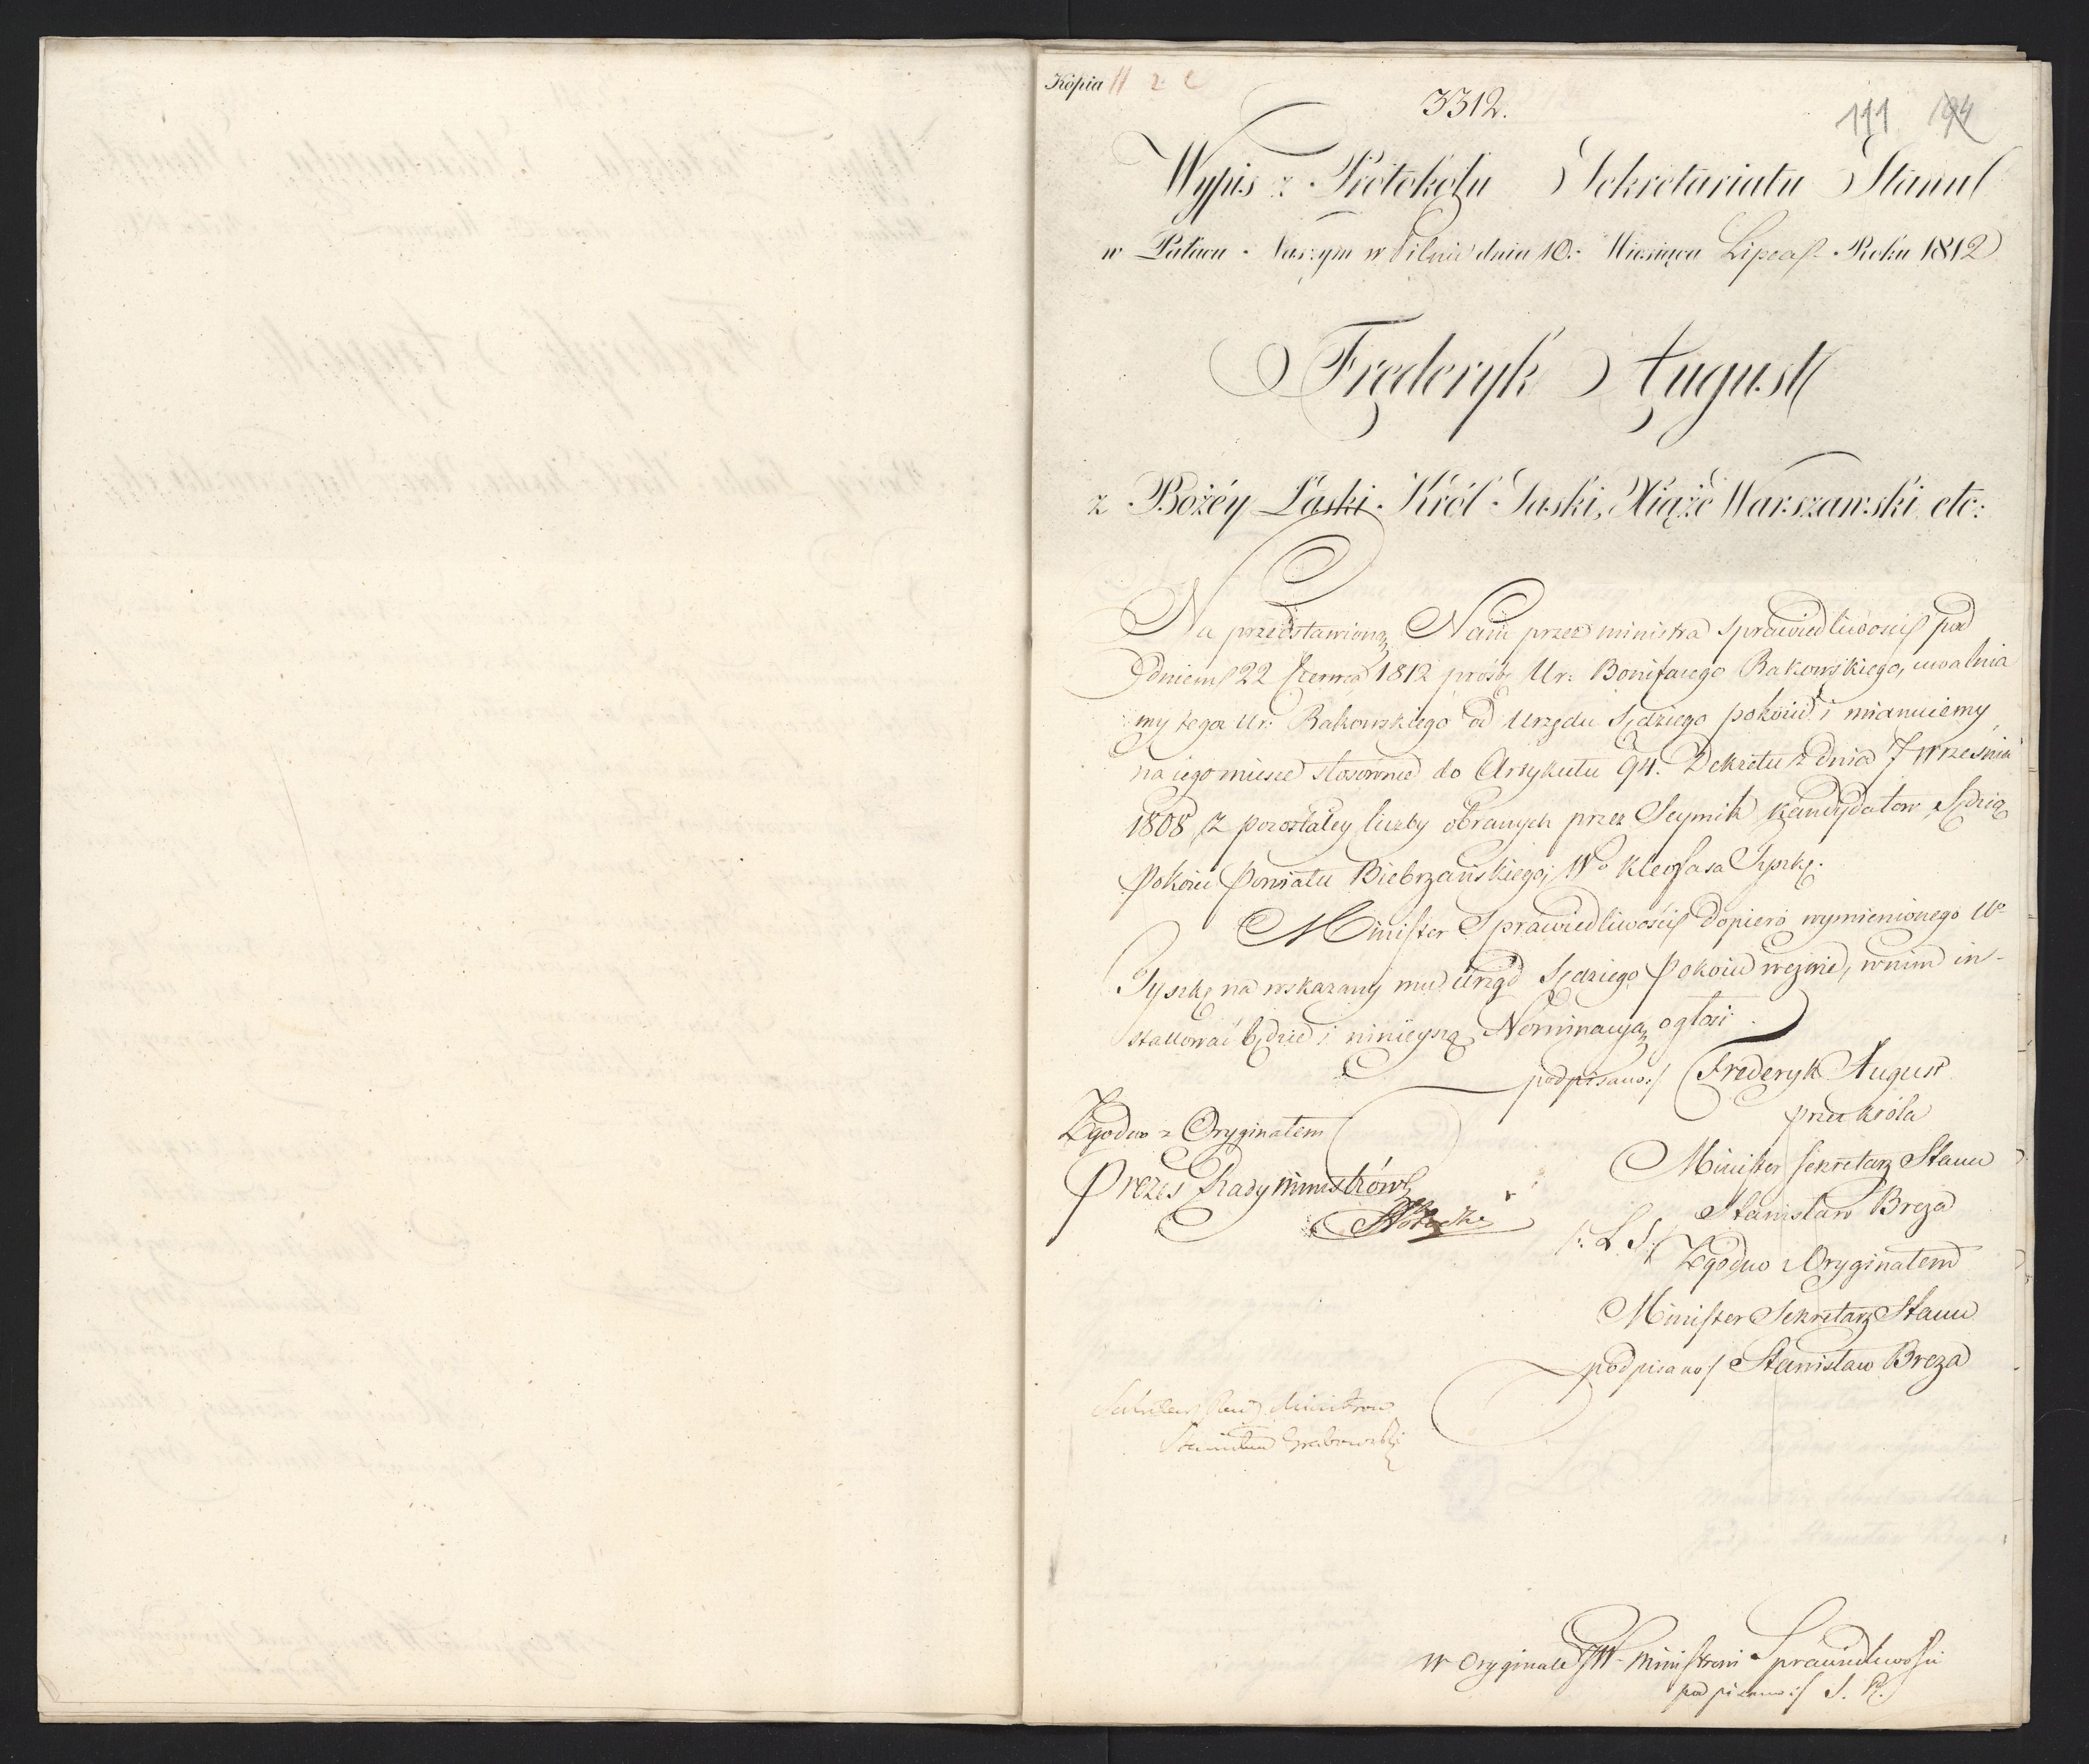 Kopia
3312.
111 194
Wypis z Protokołu Sekretariatu Stanu
w Pałacu Naszym w Pilnitz dnia 10. Miesiąca Lipca Roku 1812
Frederyk August
z Bożéy Łaski Król Saski, Xiąże Warszawski etc:
Na przedstawioną Nam przez ministra sprawiedliwości pod
dniem 22 Czerwca 1812 prośbę Ur: Bonifacego Rakowskiego, uwalnia
my tegoż Ur: Rakowskiego od Urzędu Sędziego pokoiu i mianuiemy
na iego miesce stosownie do Artykułu 94. Dekretu z dnia 7 września
1808 z pozostałey liczby obranych przez Seymik kandydatow Sędzią
Pokoiu Powiatu Biebrzańskiego, Wo Kleofasa Tyszkę.
Minister Sprawiedliwości dopiero wymienionego Wo
Tyszkę na wskazany mu Urząd Sędziego Pokoiu wezwie, w nim in-
stallować będzie i ninieyszą Nominacyą ogłosi.
podpisano:/ Frederyk August
przez króla
Zgodno z Oryginałem
Prezes Rady ministrów
Minister Sekretarz Stanu
Stanisław Breza
/: L. S. :/
Zgodno z Oryginałem
Minister Sekretarz Stanu
podpisano/ Stanisław Breza
Sekretarz Rady Ministrow
Stanisław Grabowski
w Oryginale JW Ministrowi Sprawiedliwości
podpisano:/ S. P.